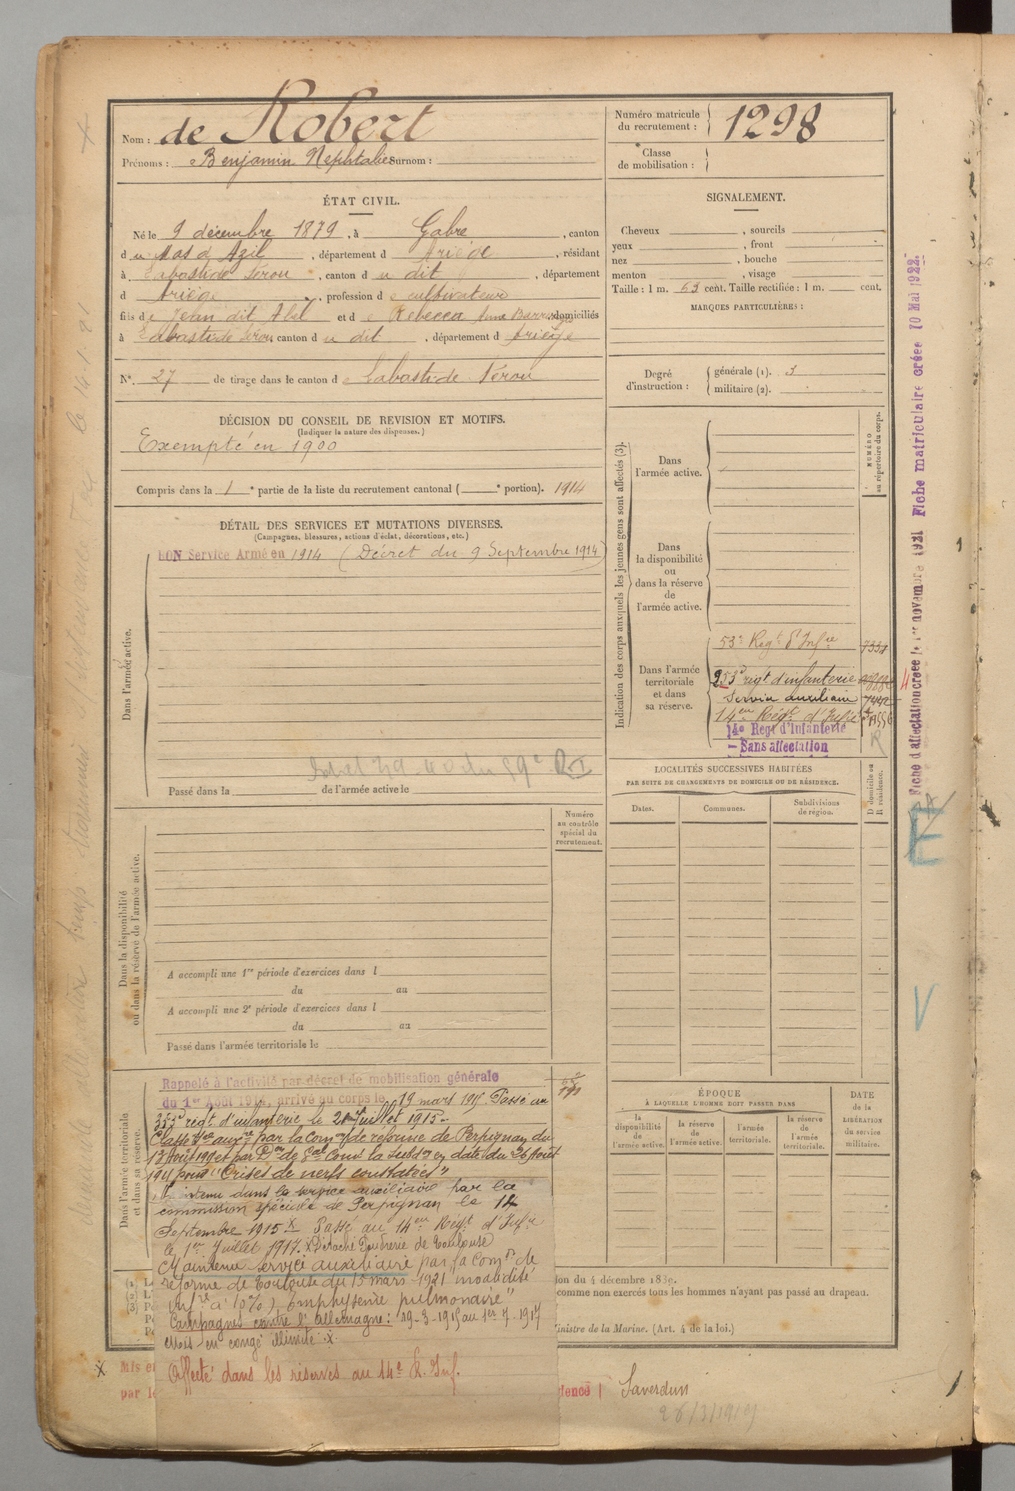 Nom : de Robert
Prénoms : Benjamin Nephtalie Surnom :
Numéro matricule du recrutement : 1298
Classe de mobilisation :
ÉTAT CIVIL.
Né le 9 décembre 1879, à Gabre, canton
du Mas d'Azil, département d Ariège, résidant
à Labastide Sérou, canton du dit, département
d Ariège, profession de cultivateur
fils de Jean dit Abel et de Rebecca domiciliés
à Labastide Sérou, canton du dit, département d Ariège
N° 27 de tirage dans le canton de Labastide Sérou
DÉCISION DU CONSEIL DE REVISION ET MOTIFS.
(Indiquer la nature des dispenses.)
Exempté en 1900
Compris dans la 1e partie de la liste du recrutement cantonal ( e portion). 1914
DÉTAIL DES SERVICES ET MUTATIONS DIVERSES.
(Campagnes, blessures, actions d'éclat, décorations, etc.)
BON Service Armé en 1914 (Décret du 9 Septembre 1914)
Dans l'armée active.
Passé dans la de l'armée active le
Numéro au contrôle spécial du recrutement.
Dans la disponibilité ou dans la réserve de l'armée active.
A accompli une 1re période d'exercices dans l
du au
A accompli une 2e période d'exercices dans l
du au
Passé dans l'armée territoriale le
Dans l'armée territoriale et dans sa réserve.
Rappelé à l'activité par décret de mobilisation générale
du 1er Août 1914, arrivé au corps le 19 mars 1915. Passé au
253e régt. d'infanterie le 21 juillet 1915.
Classé Sce auxre par la Comon de réforme de Perpignan du
13 Août 1915 et par Don de Gal Comt la Subdon en date du 20 Août
1915 pour "Crises de nerfs constatées"
Maintenu dans le service auxiliaire par la
commission spéciale de Perpignan le 14
Septembre 1915 X Passé au 14em Régt d'Infie
le 1er Juillet 1917. X Détaché Poudrerie de Toulouse
Maintenu service auxiliaire par la Comon de
réforme de Toulouse du 15 mars 1921
infre à 10%) Emphysème pulmonaire"
Campagnes contre l'allemagne : 19-3-1915 au 1er-7-1917
en congé illimité X.
Affecté dans les réserves au 14e R. Inf.
SIGNALEMENT.
Cheveux , sourcils
yeux , front
nez , bouche
menton , visage
Taille : 1 m. 63 cent. Taille rectifiée : 1 m. cent.
MARQUES PARTICULIÈRES :
Degré d'instruction : générale (1). 3
militaire (2).
Indication des corps auxquels les jeunes gens sont affectés (3).
NUMÉRO au répertoire du corps.
Dans l'armée active.
Dans la disponibilité ou dans la réserve de l'armée active.
Dans l'armée territoriale et dans sa réserve.
53e Régt d'Infie
253e régt d'infanterie
Service auxiliaire
14em Régt d'Infie
14e Regt d'Infanterie
- Sans affectation
LOCALITÉS SUCCESSIVES HABITÉES
PAR SUITE DE CHANGEMENTS DE DOMICILE OU DE RÉSIDENCE.
Dates. Communes. Subdivisions de région. D domicile ou R résidence.
ÉPOQUE
À LAQUELLE L'HOMME DOIT PASSER DANS
la disponibilité de l'armée active. la réserve de l'armée active. l'armée territoriale. la réserve de l'armée territoriale.
DATE de la LIBÉRATION du service militaire.
ion du 4 décembre 1889.
comme non exercés tous les hommes n'ayant pas passé au drapeau.
inistre de la Marine. (Art. 4 de la loi.)
Saverdun
26/3/1919
Fiche d'affectation créée le 1er novembre 1921 Fiche matriculaire créée 10 Mai 1922